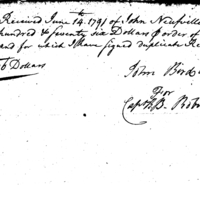 Received June 14th 1791 of John Neufvill
hundred & Seventy six Dollars & order of
and for which I have Signed duplicate Re
6 Dollars
John
For
Capt B. Rob